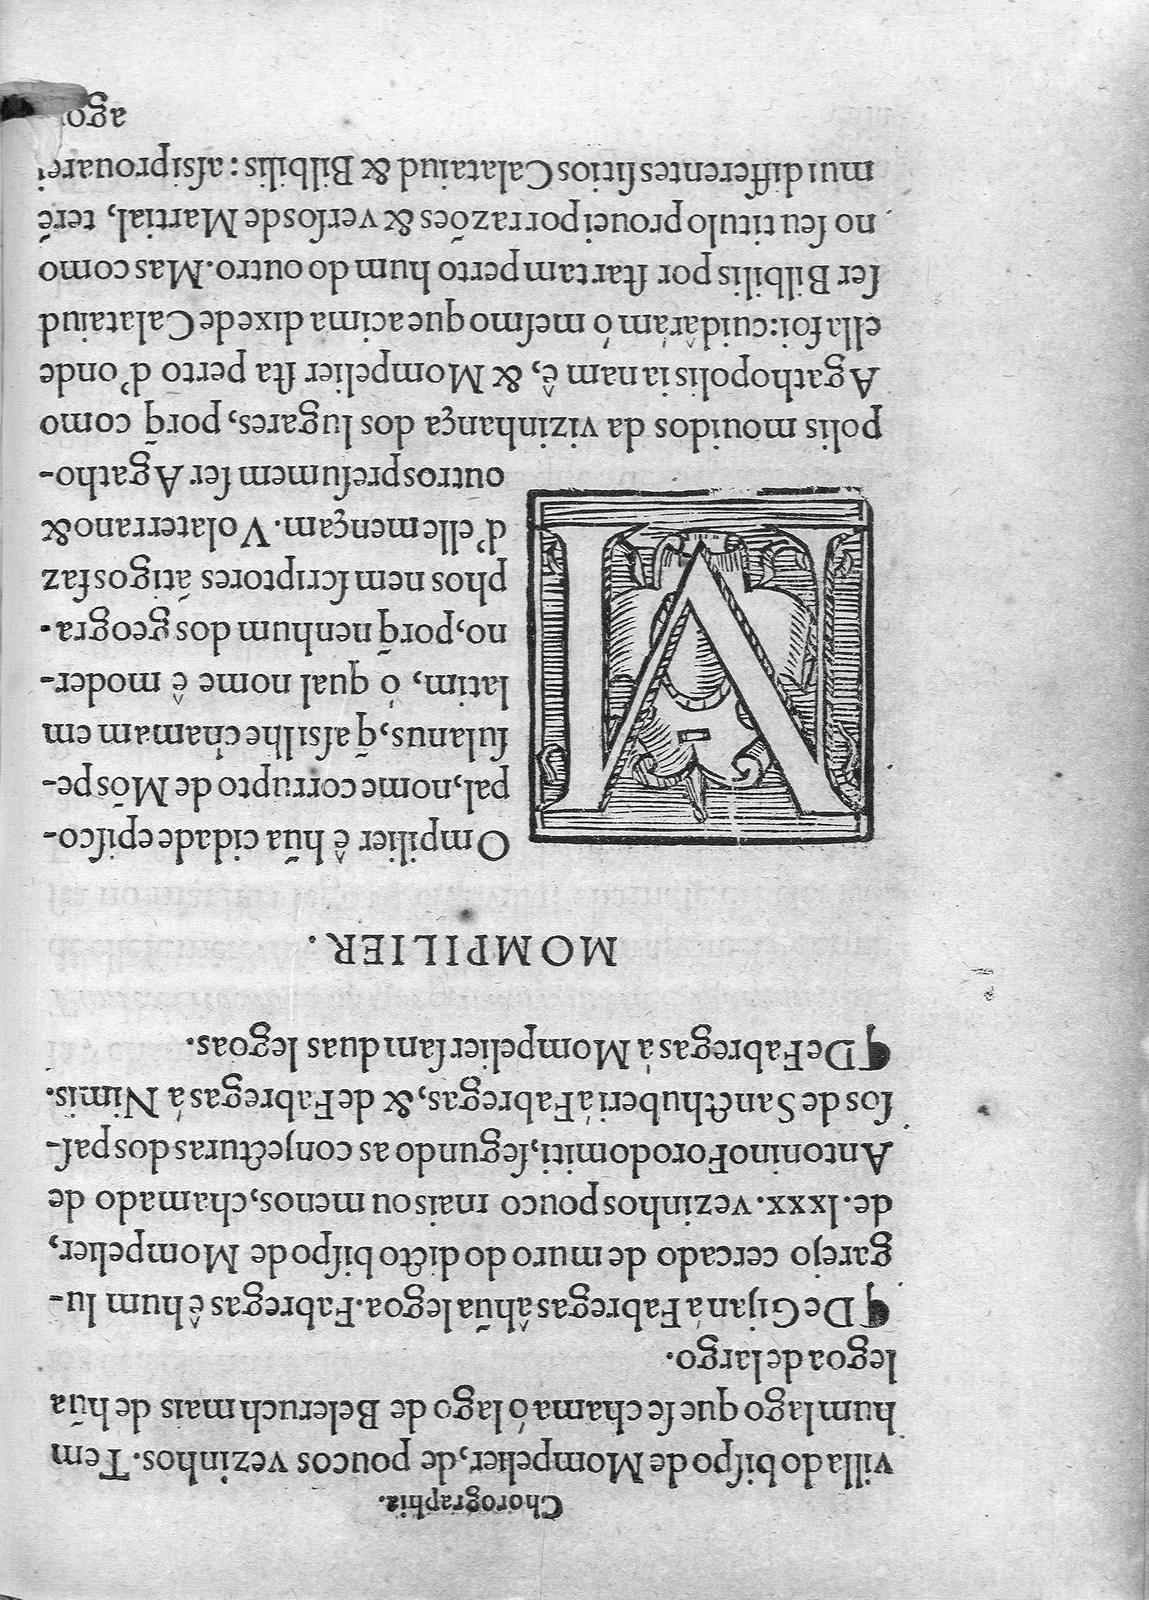 Chorographia.
villa do bispo de Mompelier, de poucos vezinhos. Tem
hum lago que se chama ó lago de Beleruch mais de hũa
legoa de largo.
¶ De Gijan á Fabregas â hũa legoa. Fabregas ê hum lu-
garejo cercado de muro do dicto bispo de Mompelier,
de. lxxx. vezinhos pouco mais ou menos, chamado de
Antonino Forodomiti, segundo as conjecturas dos pas-
sos de Sancthuberi á Fabregas, &, de Fabregas á Nimis.
¶ De Fabregas á Mompelier sam duas legoas.
MOMPILIER.
MOmpilier ê hũa cidade episco-
pal, nome corrupto de Mõspe-
sulanus, q̃ assi lhe chamam em
latim, ó qual nome ê moder-
no, porq̃ nenhum dos geogra-
phos nem scriptores ãtigos faz
d'elle mençam. Volaterrano &
outros presumem ser Agatho-
polis mouidos da vizinhança dos lugares, porq̃ como
Agathopolis ia nam ê, & Mompelier sta perto d'onde
ella foi: cuidâràm ó mesmo que acima dixe de Calataiud
ser Bilbilis por star tam perto hum do outro. Mas como
no seu titulo prouei por razões & versos de Martial, terẽ
mui differentes sitios Calataiud & Bilbilis: assi prouarei